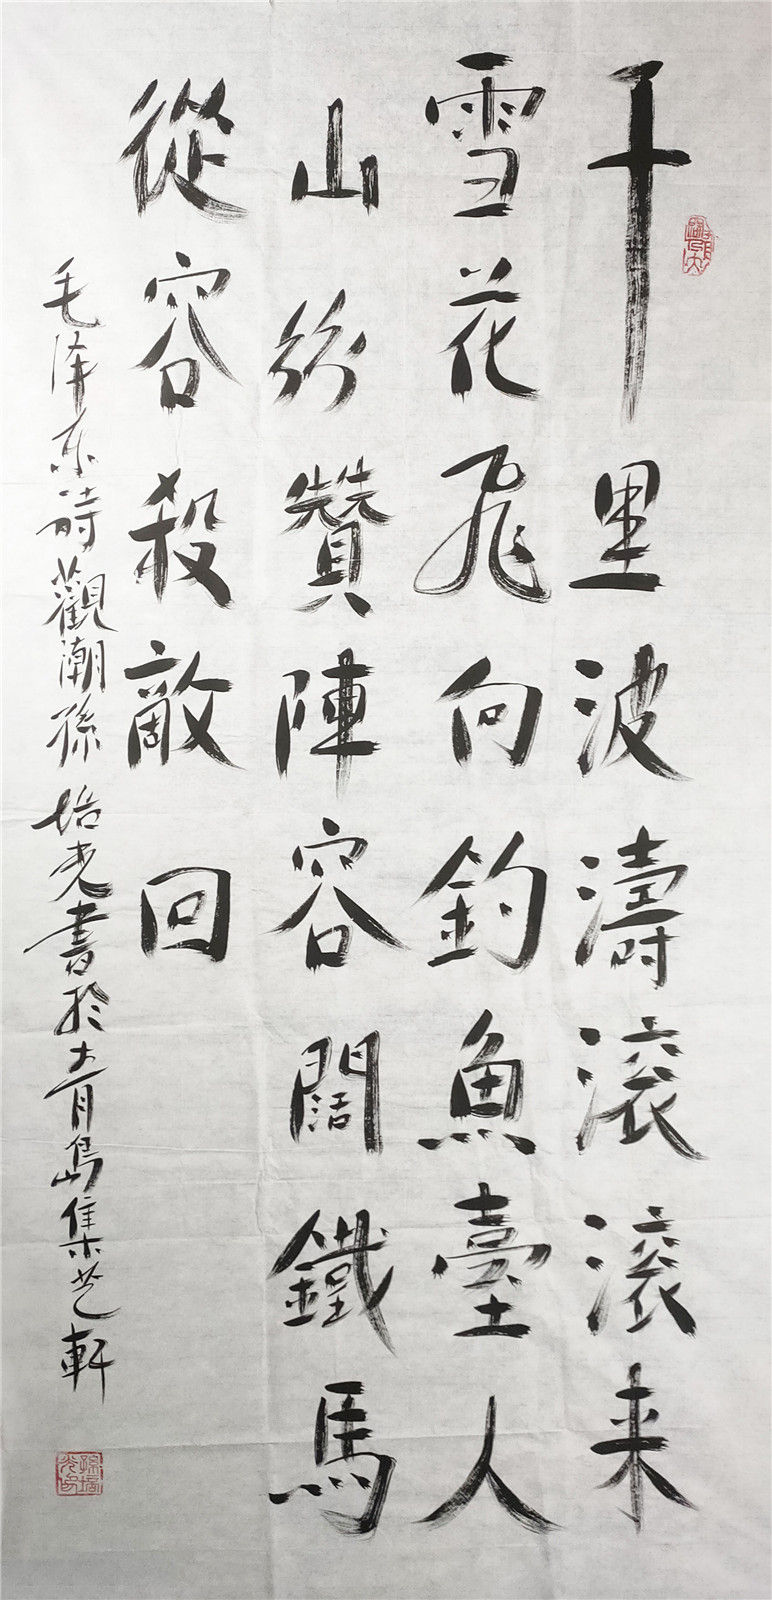 千里波濤滚滚来
雪花飛向釣魚臺人
山紛贊陣容闊鐵馬
從容殺敵回
毛泽东詩觀潮孫培光書於青島集芝軒
孫培光印